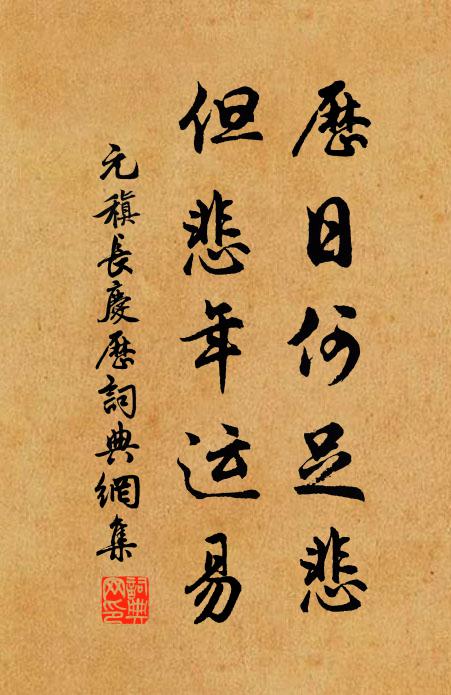 歷日何足悲
但悲年运易
元稹長慶歷詞典網集
詞典网印